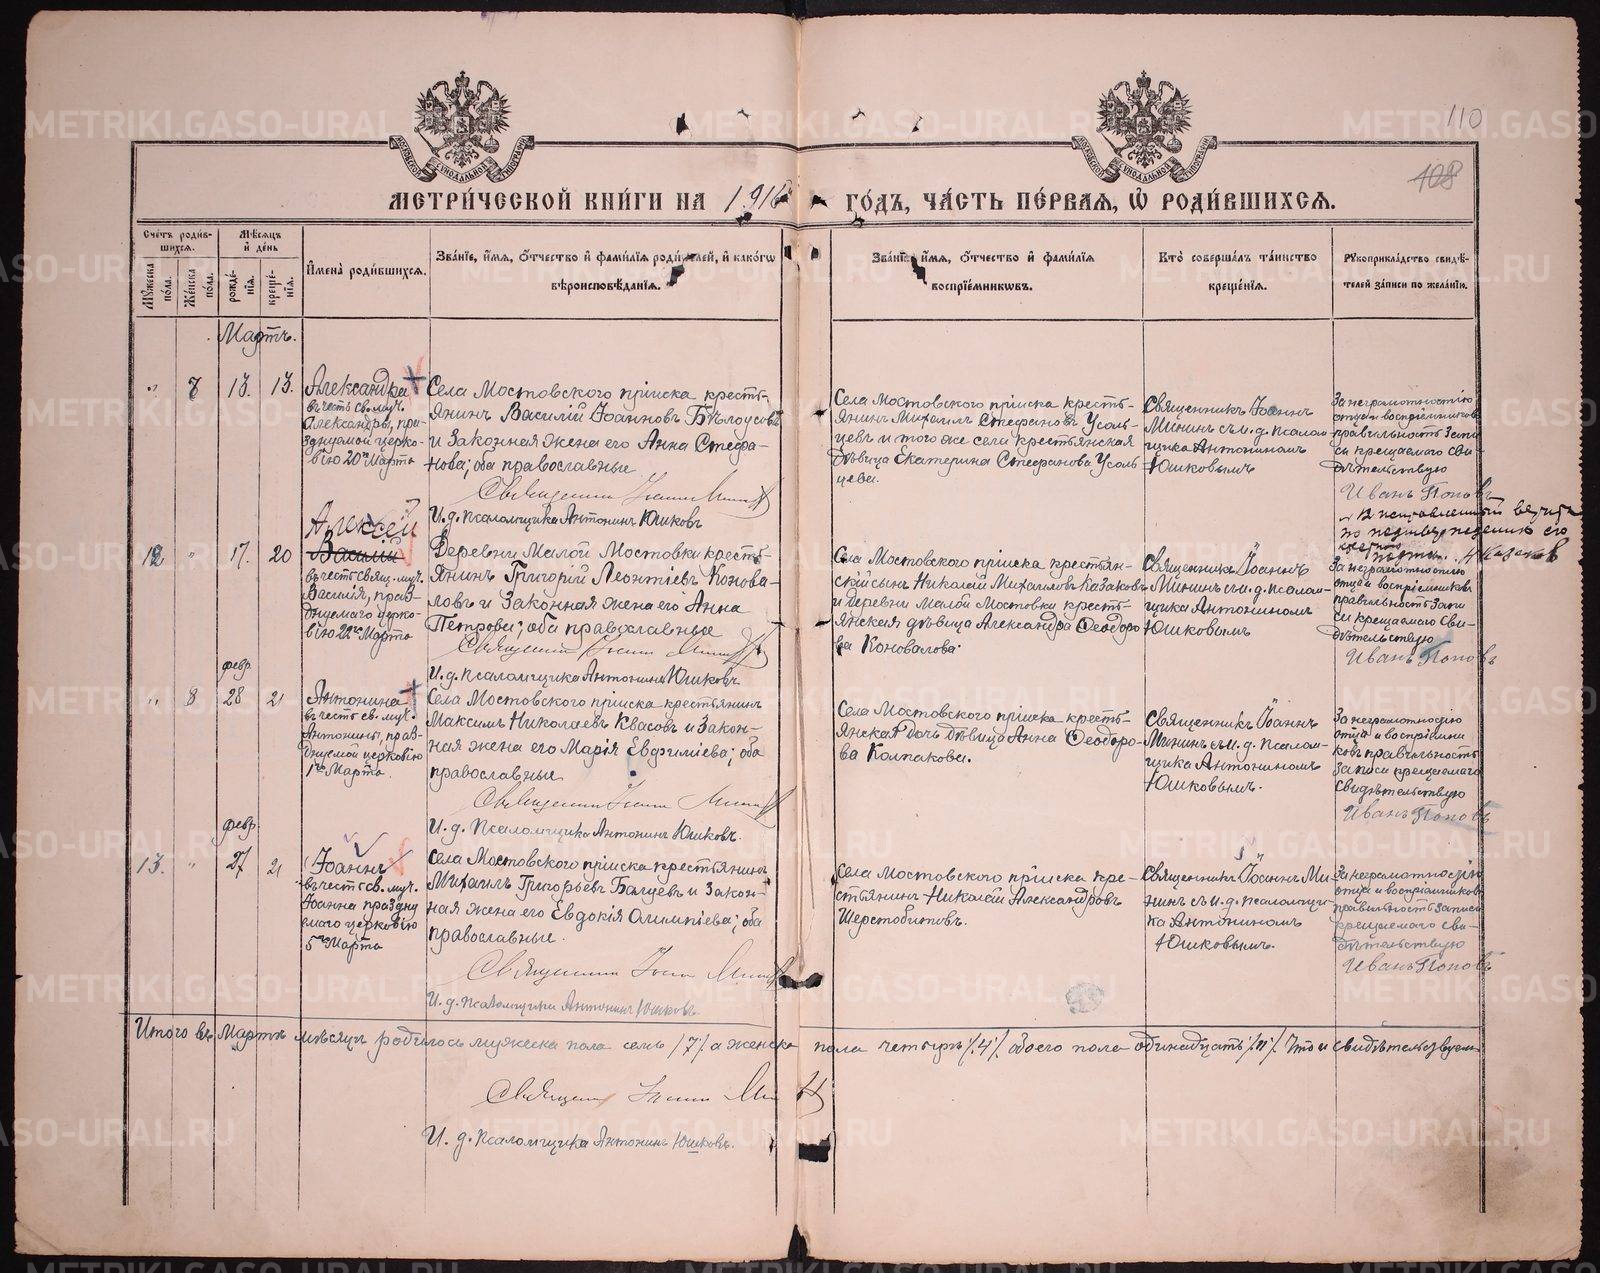 110
108
МЕТРИ́ЧЕСКОЙ КНИ́ГИ НА 1916 ГО́ДЪ, ЧА́СТЬ ПЕ́РВАЯ, Ѡ҆ РОДИ́ВШИХСЯ.
Сче́тъ роди́вшихся.
Мꙋ́жеска по́ла.
Же́нска по́ла.
Мѣ́сяцъ и҆ де́нь
рожде́нїя.
креще́нїя.
И҆мена̀ роди́вшихся.
Зва́нїе, и҆́мя, ѻ҆́тчество и҆ фами́лїя роди́телей, и҆ како́гѡ
вѣроисповѣ́данїя.
Зва́нїе, и҆́мя, ѻ҆́тчество и҆ фами́лїя
воспрїе́мникѡвъ.
Кто̀ соверша́лъ та́инство
креще́нїя.
Рꙋкоприкла́дство свидѣ́-
телей за́писи по жела́нїю.
Мартъ.
" 7 13. 13.
Александра
въ честь св. муч.
Александры, пра-
зднуемой церко-
вію 20го Марта
Села Мостовского пріиска кресть-
янинъ Василій Іоанновъ Бѣлоусовъ
и законная жена его Анна Стефа-
нова; оба православные
Священникъ Іоаннъ Мининъ
И. д. псаломщика Антонинъ Юшковъ
Села Мостовского пріиска кресть-
янинъ Михаилъ Стефановъ Усоль-
цевъ и того же села крестьянская
дѣвица Екатерина Стефанова Усоль
цева.
Священникъ Іоаннъ
Мининъ съ и. д. псалом-
щика Антониномъ
Юшковымъ
За неграмотностію
отца и воспріемниковъ
правильность запи
си крещаемаго сви-
дѣтельствую
Иванъ Поповъ
12 " 17. 20
Алексѣй
Василій
въ честь свящ. муч.
Василія, праз-
днуемаго церко-
вію 22го Марта
Деревни Малой Мостовки кресть-
янинъ Григорій Леонтіевъ Конова-
ловъ и законная жена его Анна
Петрова; оба православные
Священникъ Іоаннъ Мининъ
И. д. псаломщика Антонинъ Юшковъ
Села Мостовского пріиска крестьян-
скій сынъ Николай Михаиловъ Казаковъ
и деревни Малой Мостовки кресть-
янская дѣвица Александра Ѳеодоро
ва Коновалова.
Священникъ Іоаннъ
Мининъ съ и. д. псалом-
щика Антониномъ
Юшковымъ
За неграмотностію
отца и воспріемниковъ
правильность запи
си крещаемаго сви-
дѣтельствую
Иванъ Поповъ
февр
" 8 28 21
Антонина
въ честь св. муч.
Антонины, праз-
днуемой церковію
1го Марта.
Села Мостовского пріиска крестьянинъ
Максимъ Николаевъ Квасовъ и закон-
ная жена его Марія Евдокиміева; оба
православные
Священникъ Іоаннъ Мининъ
И. д. псаломщика Антонинъ Юшковъ.
Села Мостовского пріиска кресть-
янская дочь дѣвица Анна Ѳеодоро-
ва Колпакова.
Священникъ Іоаннъ
Мининъ съ и. д. псалом-
щика Антониномъ
Юшковымъ.
За неграмотностію
отца и воспріемни
ковъ правильность
записи крещаемаго
свидѣтельствую
Иванъ Поповъ
февр.
13. " 27 21
Іоаннъ
въ честь св. муч.
Іоанна праздну
емаго церковію
5го Марта
Села Мостовского пріиска крестьянинъ
Михаилъ Григорьевъ Балуевъ и закон-
ная жена его Евдокія Олимпіева; оба
православные.
Священникъ Іоаннъ Мининъ
И. д. псаломщика Антонинъ Юшковъ.
Села Мостовского пріиска кре-
стьянинъ Николай Александровъ
Шерстобитовъ.
Священникъ Іоаннъ Ми-
нинъ съ и. д. псаломщи-
ка Антониномъ
Юшковымъ.
За неграмотностію
отца и воспріемниковъ
правильность записи
крещаемаго сви-
дѣтельствую
Иванъ Поповъ
Итого въ Мартѣ мѣсяцѣ родилось мужеска пола семь /7/ а женска пола четыре /4/ обоего пола одинадцать /11/. Что и свидѣтельствуемъ
Священникъ Іоаннъ Мининъ
И. д. псаломщика Антонинъ Юшковъ.
METRIKI.GASO-URAL.RU